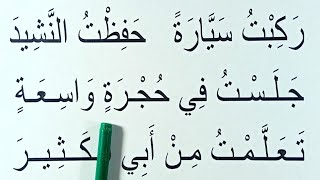 رَكِبْتُ سَيَّارَةً حَفِظْتُ النَّشِيدَ
جَلَسْتُ فِي حُجْرَةٍ وَاسِعَةٍ
تَعَلَّمْتُ مِنْ أَبِي كَثِيرَ